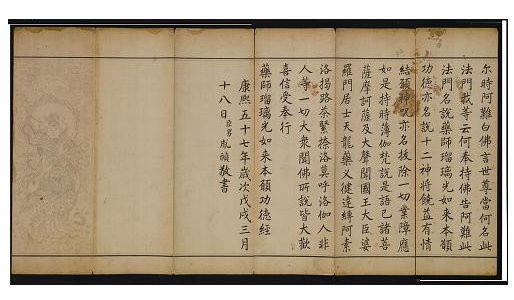 尔時阿難白佛言世尊當何名此
法門我等云何奉持佛告阿難此
法門名說藥師瑠璃光如來本願
功德亦名說十二神將饒益有情
結願神呪亦名拔除一切業障應
如是持時薄伽梵說是語已諸菩
薩摩訶薩及大聲聞國王大臣婆
羅門居士天龍藥叉健達縛阿素
洛揭路茶緊捺洛莫呼洛伽人非
人等一切大衆聞佛所說皆大歡
喜信受奉行
藥師瑠璃光如來本願功德經
康熙五十七年歲次戊戌三月
十八日臣男胤禎敬書